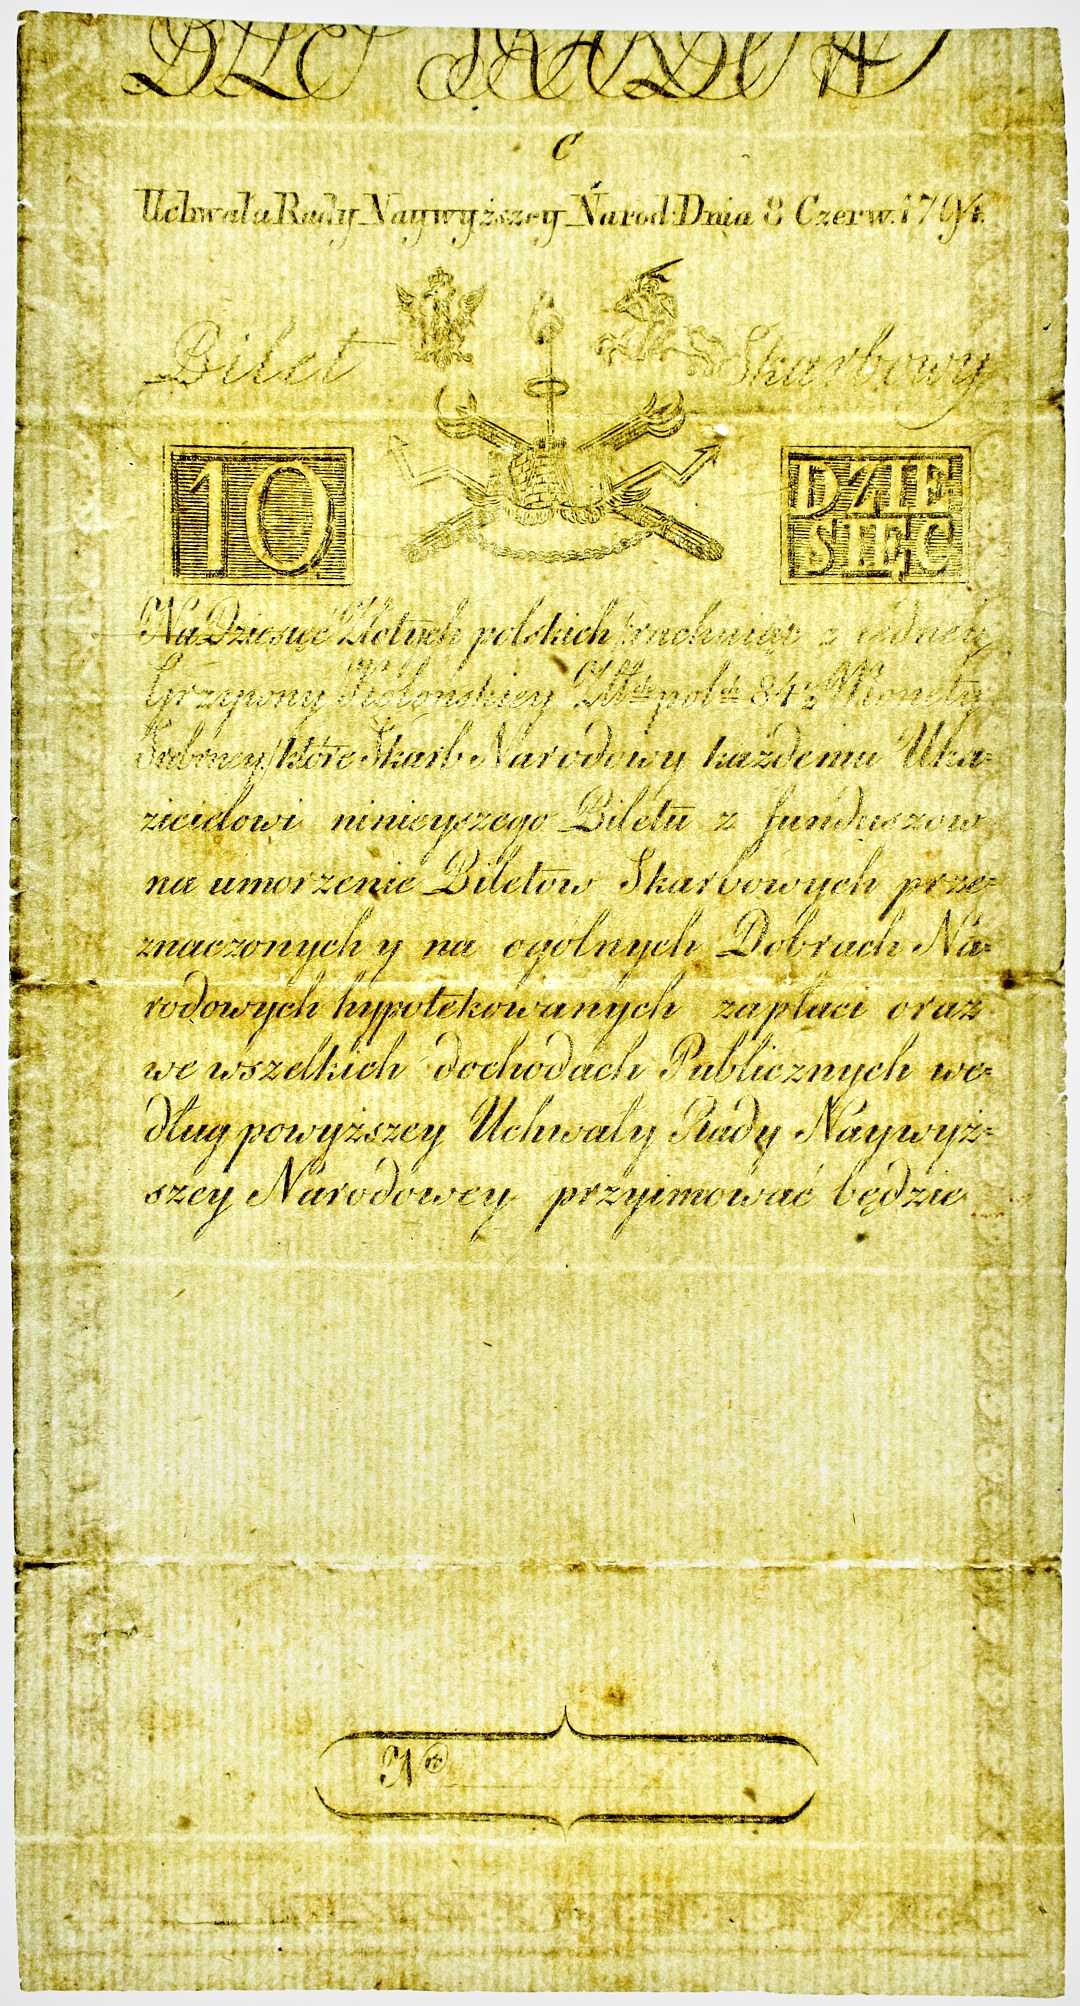 C
Uchwała Rady Naywyższey Narod: Dnia 8 Czerw. 1794.
Bilet Skarbowy
10
DZIE
SIĘĆ
Na Dziesięć Złotych polskich /rachuiąc z iedney
Grzywny Kolońskiey Złt. pol. 84½ Monety
Srebrney/ które Skarb Narodowy każdemu Uka=
zicielowi ninieyszego Biletu z funduszow
na umorzenie Biletow Skarbowych prze=
znaczonych y na ogólnych Dobrach Na=
rodowych hypotekowanych zapłaci oraz
we wszelkich dochodach Publicznych we=
dług powyższey Uchwały Rady Naywyż=
szey Narodowey przyimować będzie
Nro